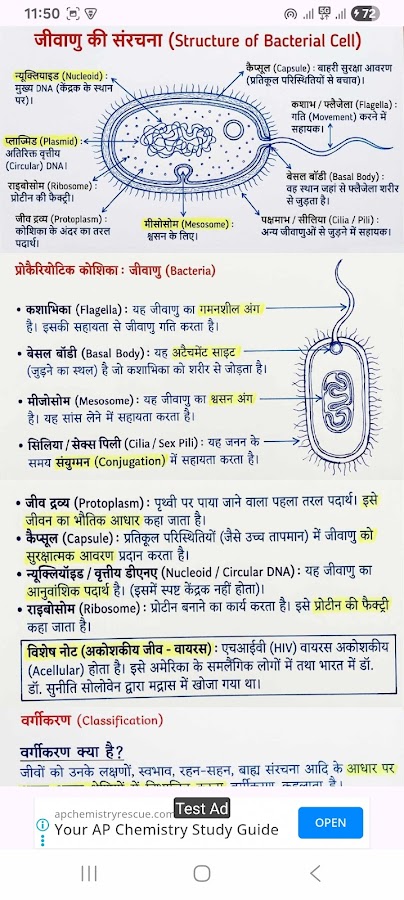 11:50
72
जीवाणु की संरचना (Structure of Bacterial Cell)
न्यूक्लियाइड (Nucleoid) :
मुख्य DNA (केंद्रक के स्थान
पर)।
प्लाज्मिड (Plasmid) :
अतिरिक्त वृत्तीय
(Circular) DNA।
राइबोसोम (Ribosome) :
प्रोटीन की फैक्ट्री।
जीव द्रव्य (Protoplasm) :
कोशिका के अंदर का तरल
पदार्थ।
मीसोसोम (Mesosome) :
श्वसन के लिए।
कैप्सूल (Capsule) : बाहरी सुरक्षा आवरण
(प्रतिकूल परिस्थितियों से बचाव)।
कशाभ / फ्लैजेला (Flagella) :
गति (Movement) करने में
सहायक।
बेसल बॉडी (Basal Body) :
वह स्थान जहां से फ्लैजेला शरीर
से जुड़ता है।
पक्षमाभ / सीलिया (Cilia / Pili) :
अन्य जीवाणुओं से जुड़ने में सहायक।
प्रोकैरियोटिक कोशिका : जीवाणु (Bacteria)
• कशाभिका (Flagella) : यह जीवाणु का गमनशील अंग
है। इसकी सहायता से जीवाणु गति करता है।
• बेसल बॉडी (Basal Body) : यह अटैचमेंट साइट
(जुड़ने का स्थल) है जो कशाभिका को शरीर से जोड़ता है।
• मीजोसोम (Mesosome) : यह जीवाणु का श्वसन अंग
है। यह सांस लेने में सहायता करता है।
• सिलिया / सेक्स पिली (Cilia / Sex Pili) : यह जनन के
समय संयुग्मन (Conjugation) में सहायता करता है।
• जीव द्रव्य (Protoplasm) : पृथ्वी पर पाया जाने वाला पहला तरल पदार्थ। इसे
जीवन का भौतिक आधार कहा जाता है।
• कैप्सूल (Capsule) : प्रतिकूल परिस्थितियों (जैसे उच्च तापमान) में जीवाणु को
सुरक्षात्मक आवरण प्रदान करता है।
• न्यूक्लियॉइड / वृत्तीय डीएनए (Nucleoid / Circular DNA) : यह जीवाणु का
आनुवांशिक पदार्थ है। (इसमें स्पष्ट केंद्रक नहीं होता)।
• राइबोसोम (Ribosome) : प्रोटीन बनाने का कार्य करता है। इसे प्रोटीन की फैक्ट्री
कहा जाता है।
विशेष नोट (अकोशकीय जीव - वायरस) : एचआईवी (HIV) वायरस अकोशकीय
(Acellular) होता है। इसे अमेरिका के समलैंगिक लोगों में तथा भारत में डॉ.
डॉ. सुनीति सोलोवेन द्वारा मद्रास में खोजा गया था।
वर्गीकरण (Classification)
वर्गीकरण क्या है?
जीवों को उनके लक्षणों, स्वभाव, रहन-सहन, बाह्य संरचना आदि के आधार पर
Test Ad
apchemistryrescue.com
Your AP Chemistry Study Guide
OPEN